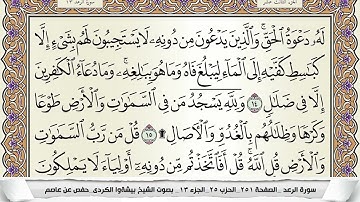 الجزء الثالث عشر
سورة الرعد ١٣
لَهُۥ دَعْوَةُ ٱلْحَقِّ ۖ وَٱلَّذِينَ يَدْعُونَ مِن دُونِهِۦ لَا يَسْتَجِيبُونَ لَهُم بِشَىْءٍ إِلَّا
كَبَٰسِطِ كَفَّيْهِ إِلَى ٱلْمَآءِ لِيَبْلُغَ فَاهُ وَمَا هُوَ بِبَٰلِغِهِۦ ۚ وَمَا دُعَآءُ ٱلْكَٰفِرِينَ
إِلَّا فِى ضَلَٰلٍ ١٤ وَلِلَّهِ يَسْجُدُ مَن فِى ٱلسَّمَٰوَٰتِ وَٱلْأَرْضِ طَوْعًا
وَكَرْهًا وَظِلَٰلُهُم بِٱلْغُدُوِّ وَٱلْءَاصَالِ ۩ ١٥ قُلْ مَن رَّبُّ ٱلسَّمَٰوَٰتِ
وَٱلْأَرْضِ قُلِ ٱللَّهُ ۚ قُلْ أَفَٱتَّخَذْتُم مِّن دُونِهِۦٓ أَوْلِيَآءَ لَا يَمْلِكُونَ
سورة الرعد _ الصفحة ٢٥١ _ الحزب ٢٥ _ الجزء ١٣ _ بصوت الشيخ بيشةوا الكردى _ حفص عن عاصم